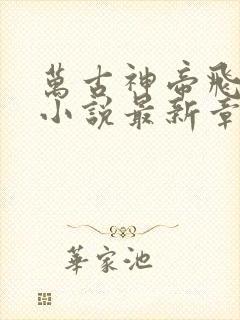 萬古神帝飛
小說最新章
華家池